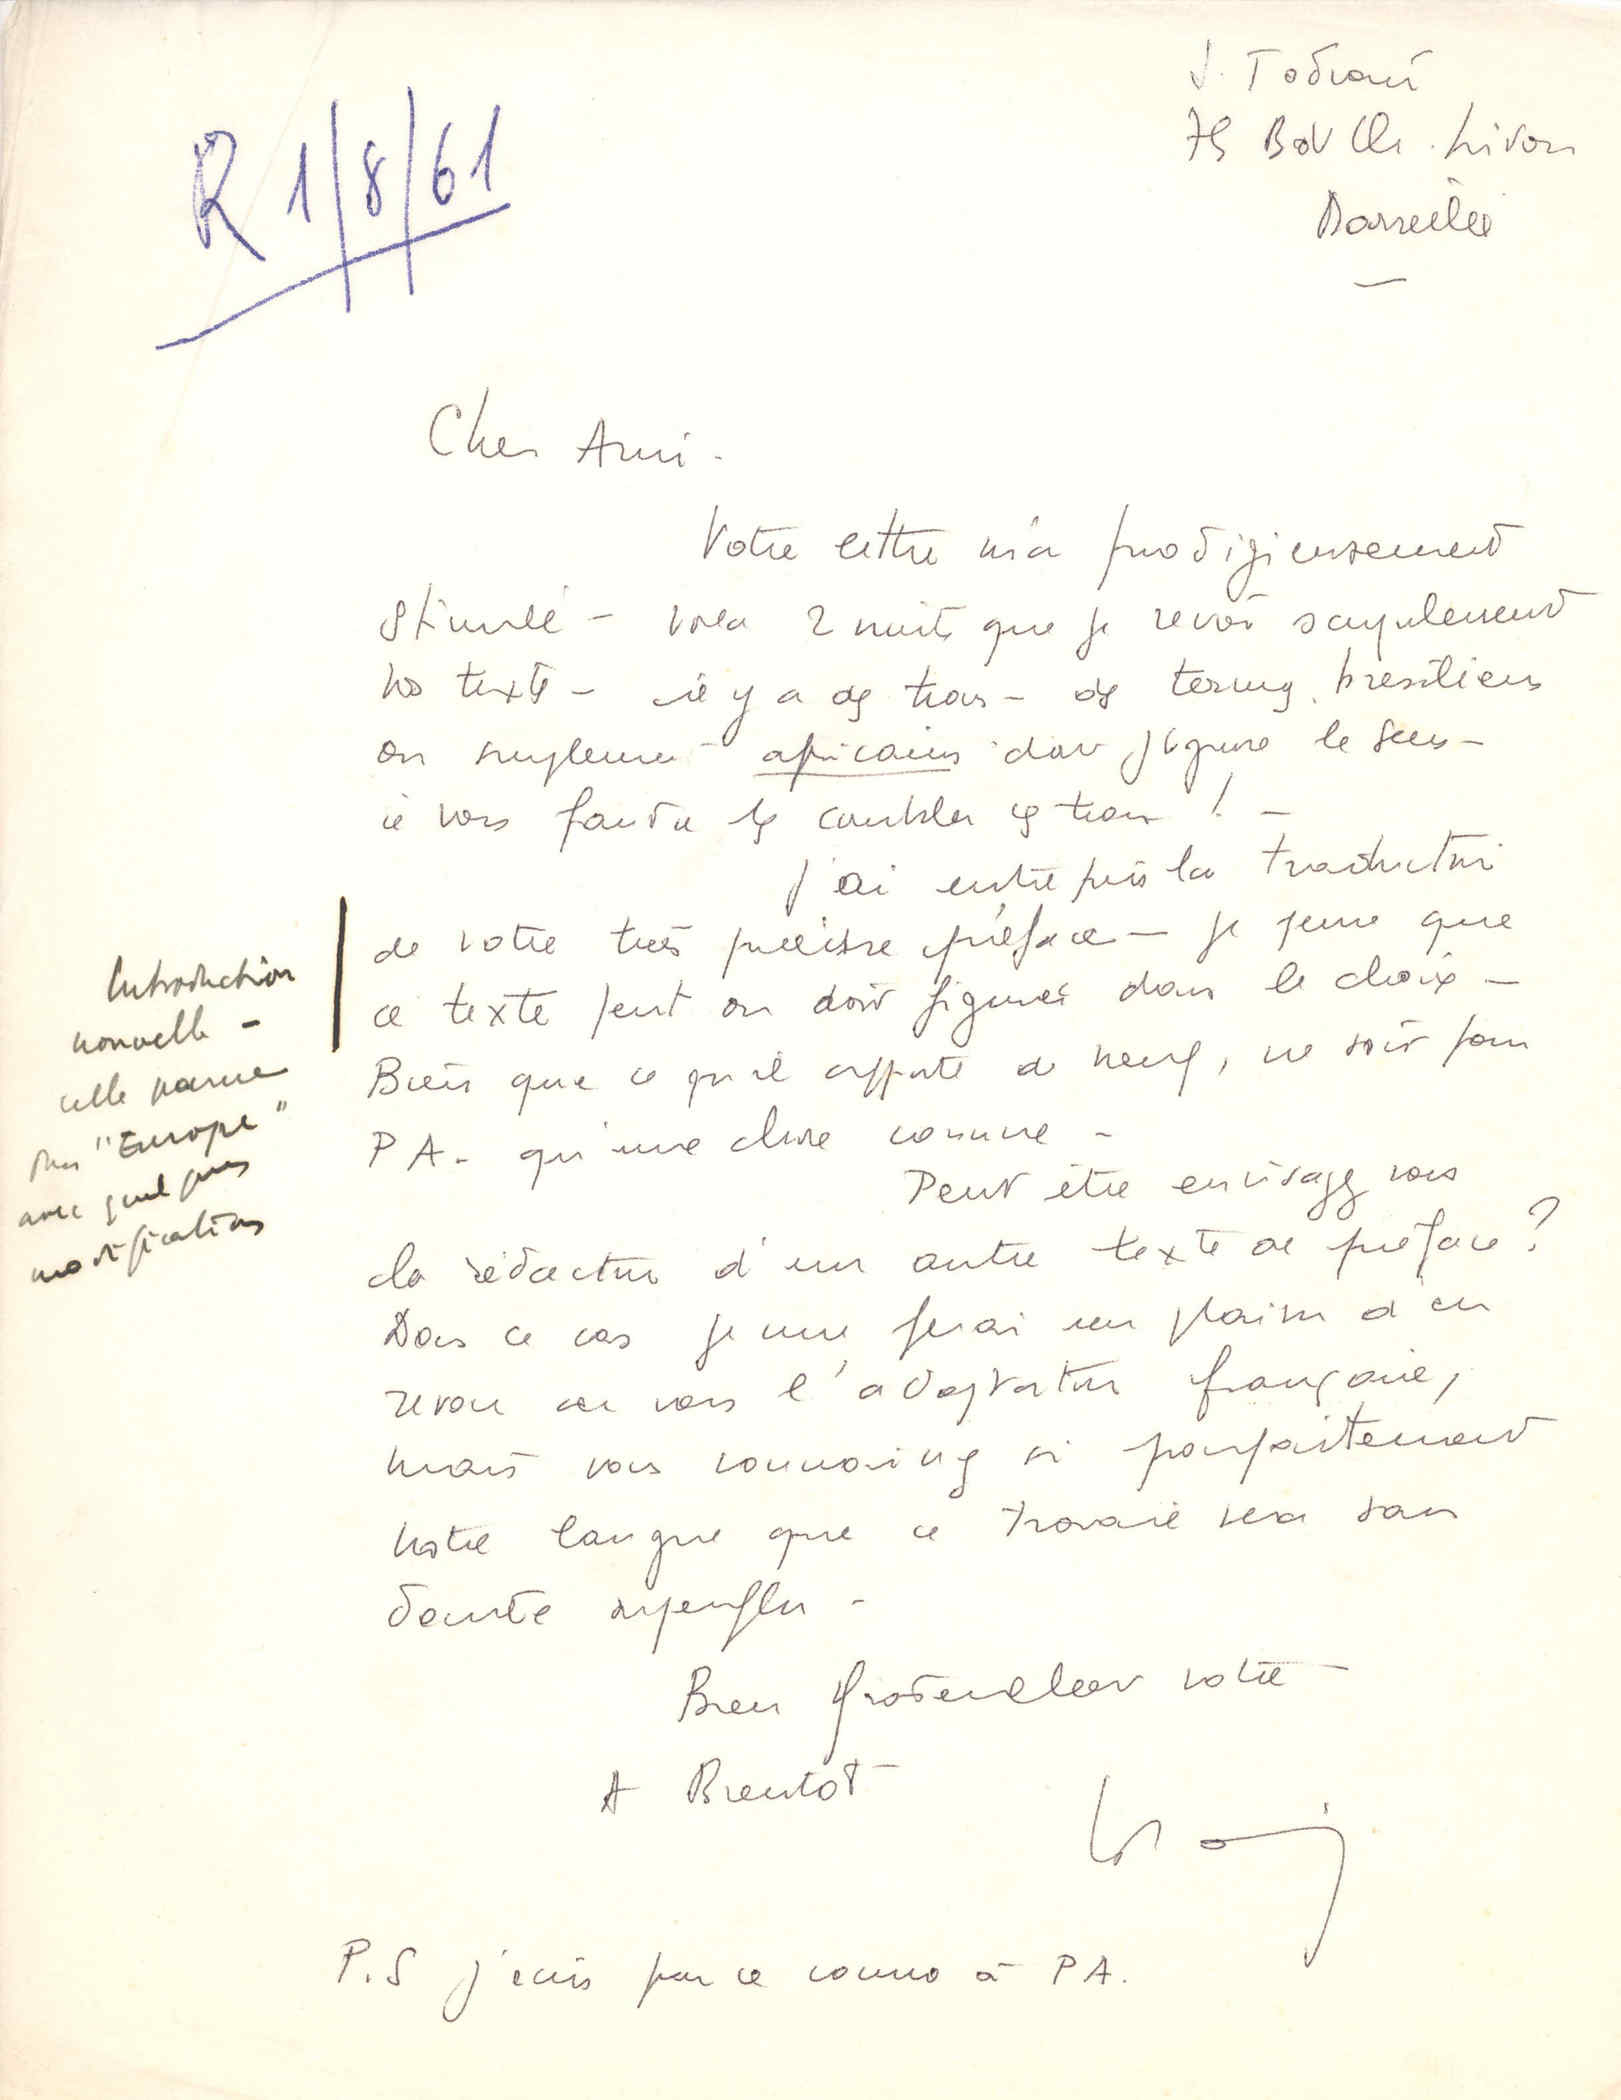 J. Todrani
75 Bd Ch. Livon
Marseille
R 1/8/61
Cher Ami -
Votre lettre m'a prodigieusement
stimulé - voila 2 nuits que je revois
vos textes - il y a des trous - des termes brésiliens
ou simplement africains dont j'ignore le sens -
il vous faudra les combler ces trous ! -
J'ai entrepris la traduction
de votre très précise préface - je pense que
ce texte peut ou doit figurer dans le choix -
Bien que ce qu'il apporte de neuf, ne soit pour
PA - qu'une chose connue -
Peut être envisagez vous
la rédaction d'un autre texte de préface ?
Dans ce cas je me ferai un plaisir d'en
revoir avec vous l'adaptation française,
mais vous connaissez si parfaitement
notre langue que ce travail sera sans
doute superflu -
Introduction
nouvelle -
celle parue
dans "Europe"
avec quelques
modifications
Bien fraternellement votre
A Bientôt
P.S j'écris par ce courrier à PA.